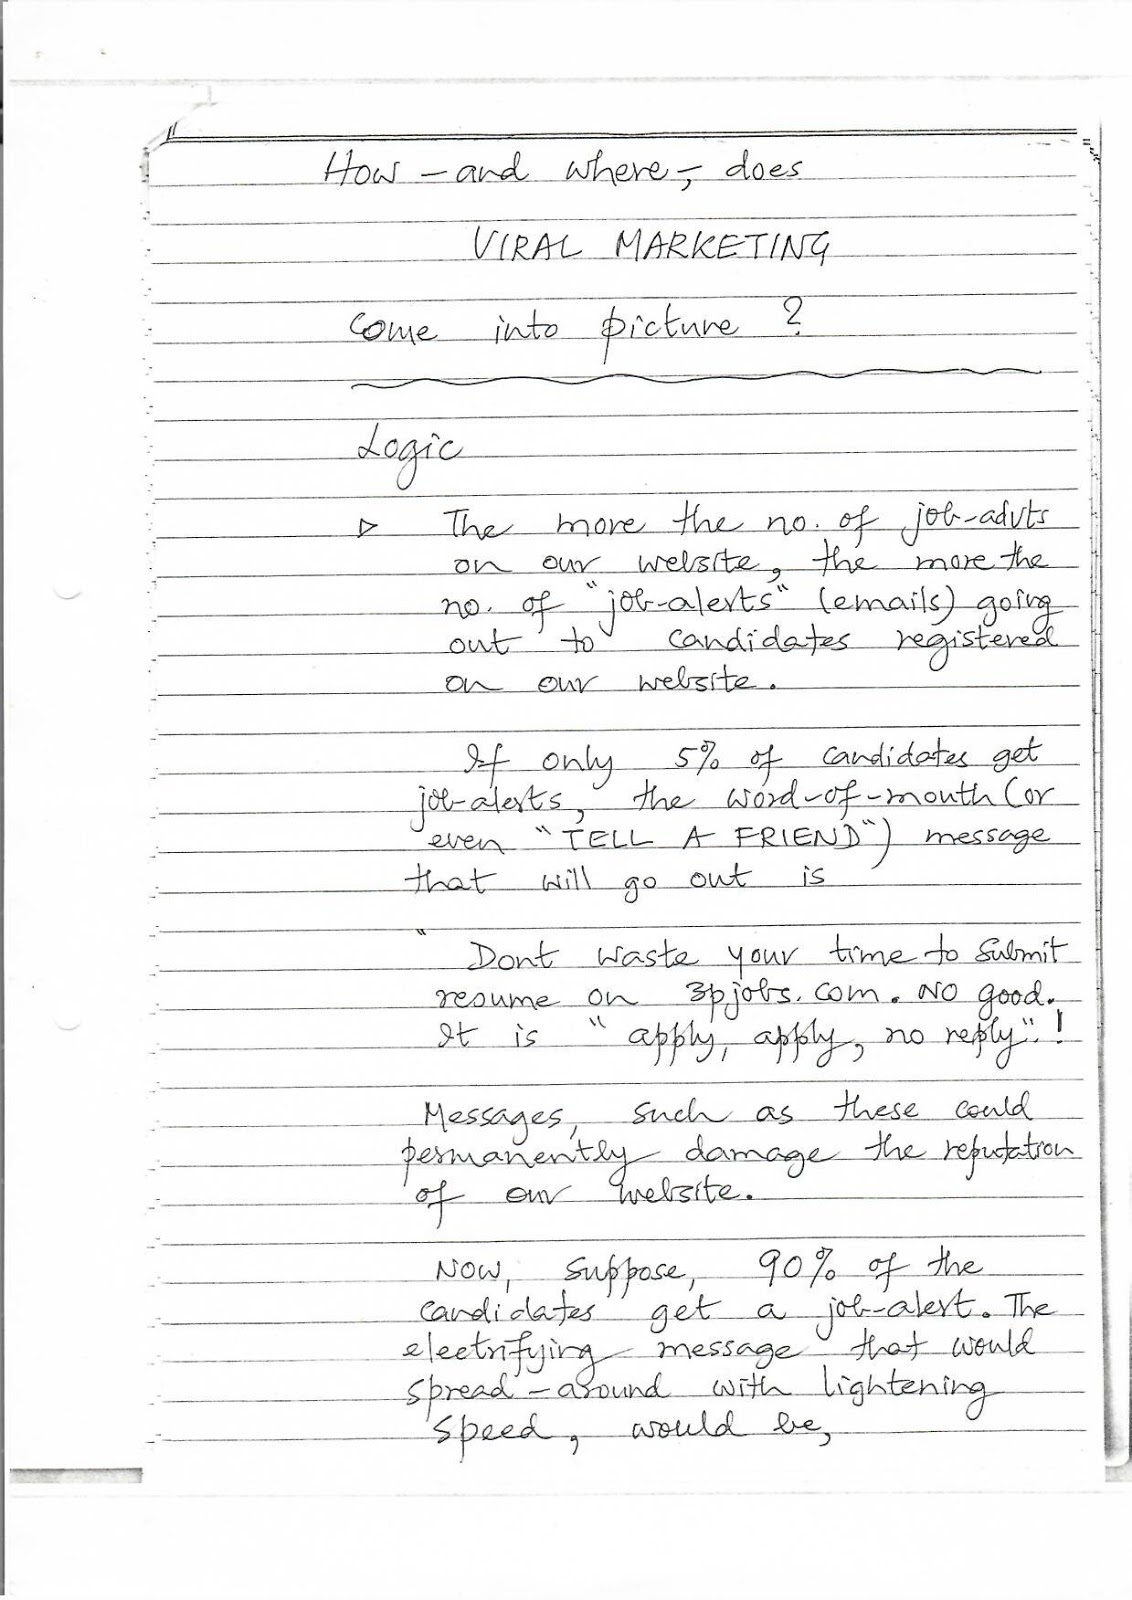 How - and where, - does
VIRAL MARKETING
come into picture ?
Logic
▷ The more the no. of job-advts
on our website, the more the
no. of "job-alerts" (emails) going
out to candidates registered
on our website.
If only 5% of candidates get
job-alerts, the word-of-mouth (or
even "TELL A FRIEND") message
that will go out is
" Dont waste your time to submit
resume on 3pjobs.com. NO good.
It is " apply, apply, no reply". !
Messages, such as these could
permanently damage the reputation
of our website.
Now, suppose, 90% of the
candidates get a job-alert. The
electrifying message that would
spread-around with lightening
speed, would be,